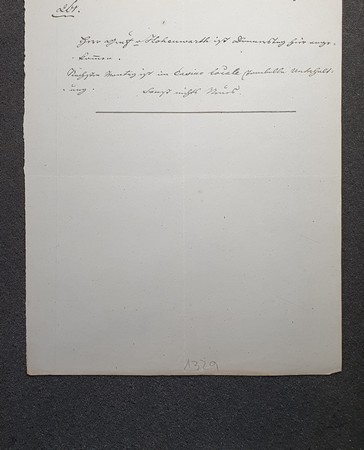 261.
Herr Graf v Hohenwarth ist Donnerstag hier ange-
kommen.
Nächsten Montag ist im Casino Locale Tombolla Unterhalt-
ung. Sonst nichts Neues.
1329